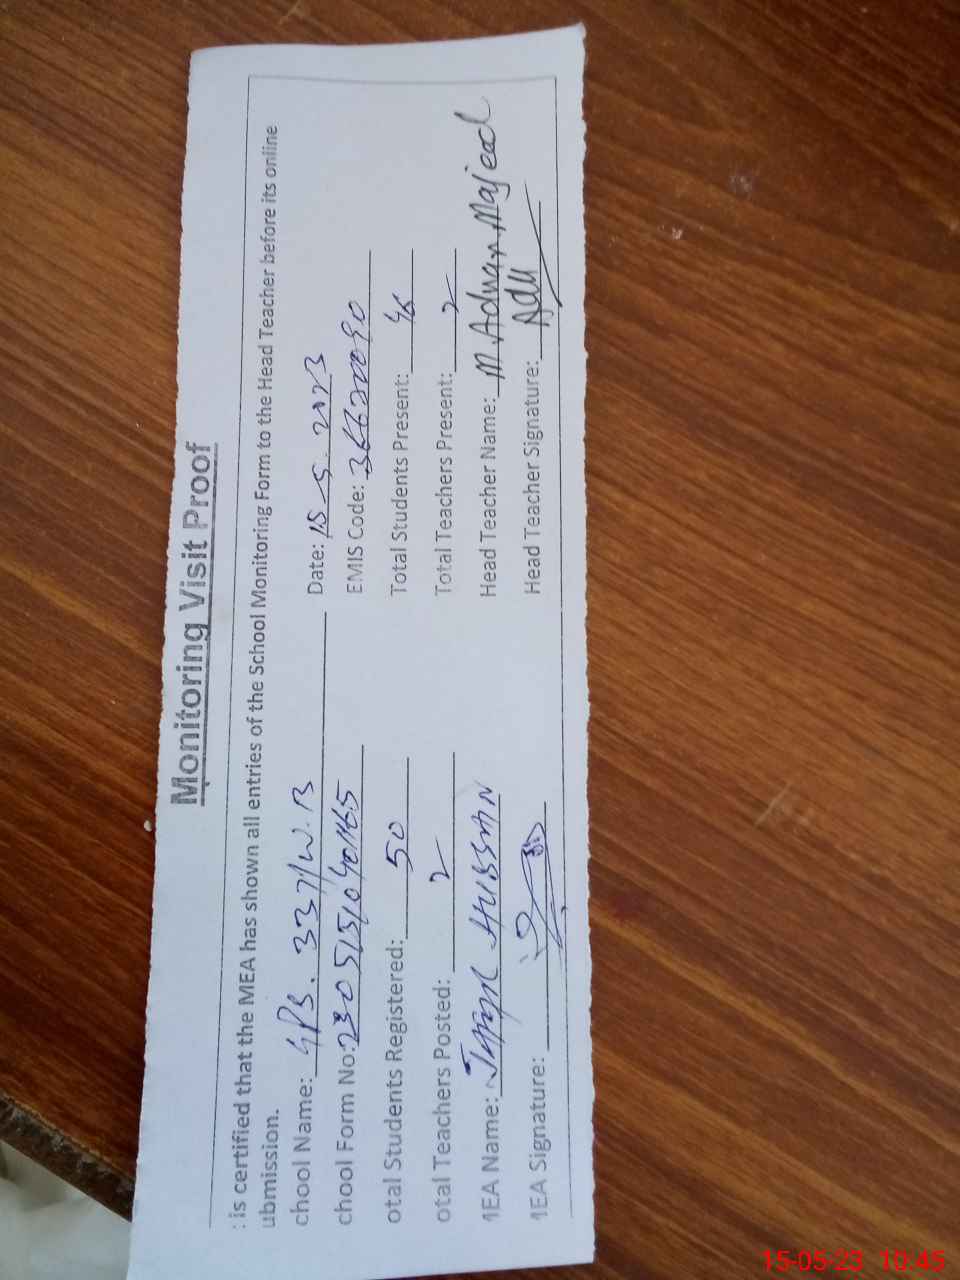 Monitoring Visit Proof
: is certified that the MEA has shown all entries of the School Monitoring Form to the Head Teacher before its online
ubmission.
chool Name: GPS. 337/W.B Date: 15-5-2023
chool Form No: EMIS Code: 36620090
otal Students Registered: 50 Total Students Present:
otal Teachers Posted: 2 Total Teachers Present: 2
MEA Name: Hussain Head Teacher Name: M. Adnan Majeed
MEA Signature: Head Teacher Signature: Adn
15-05-23 10:45